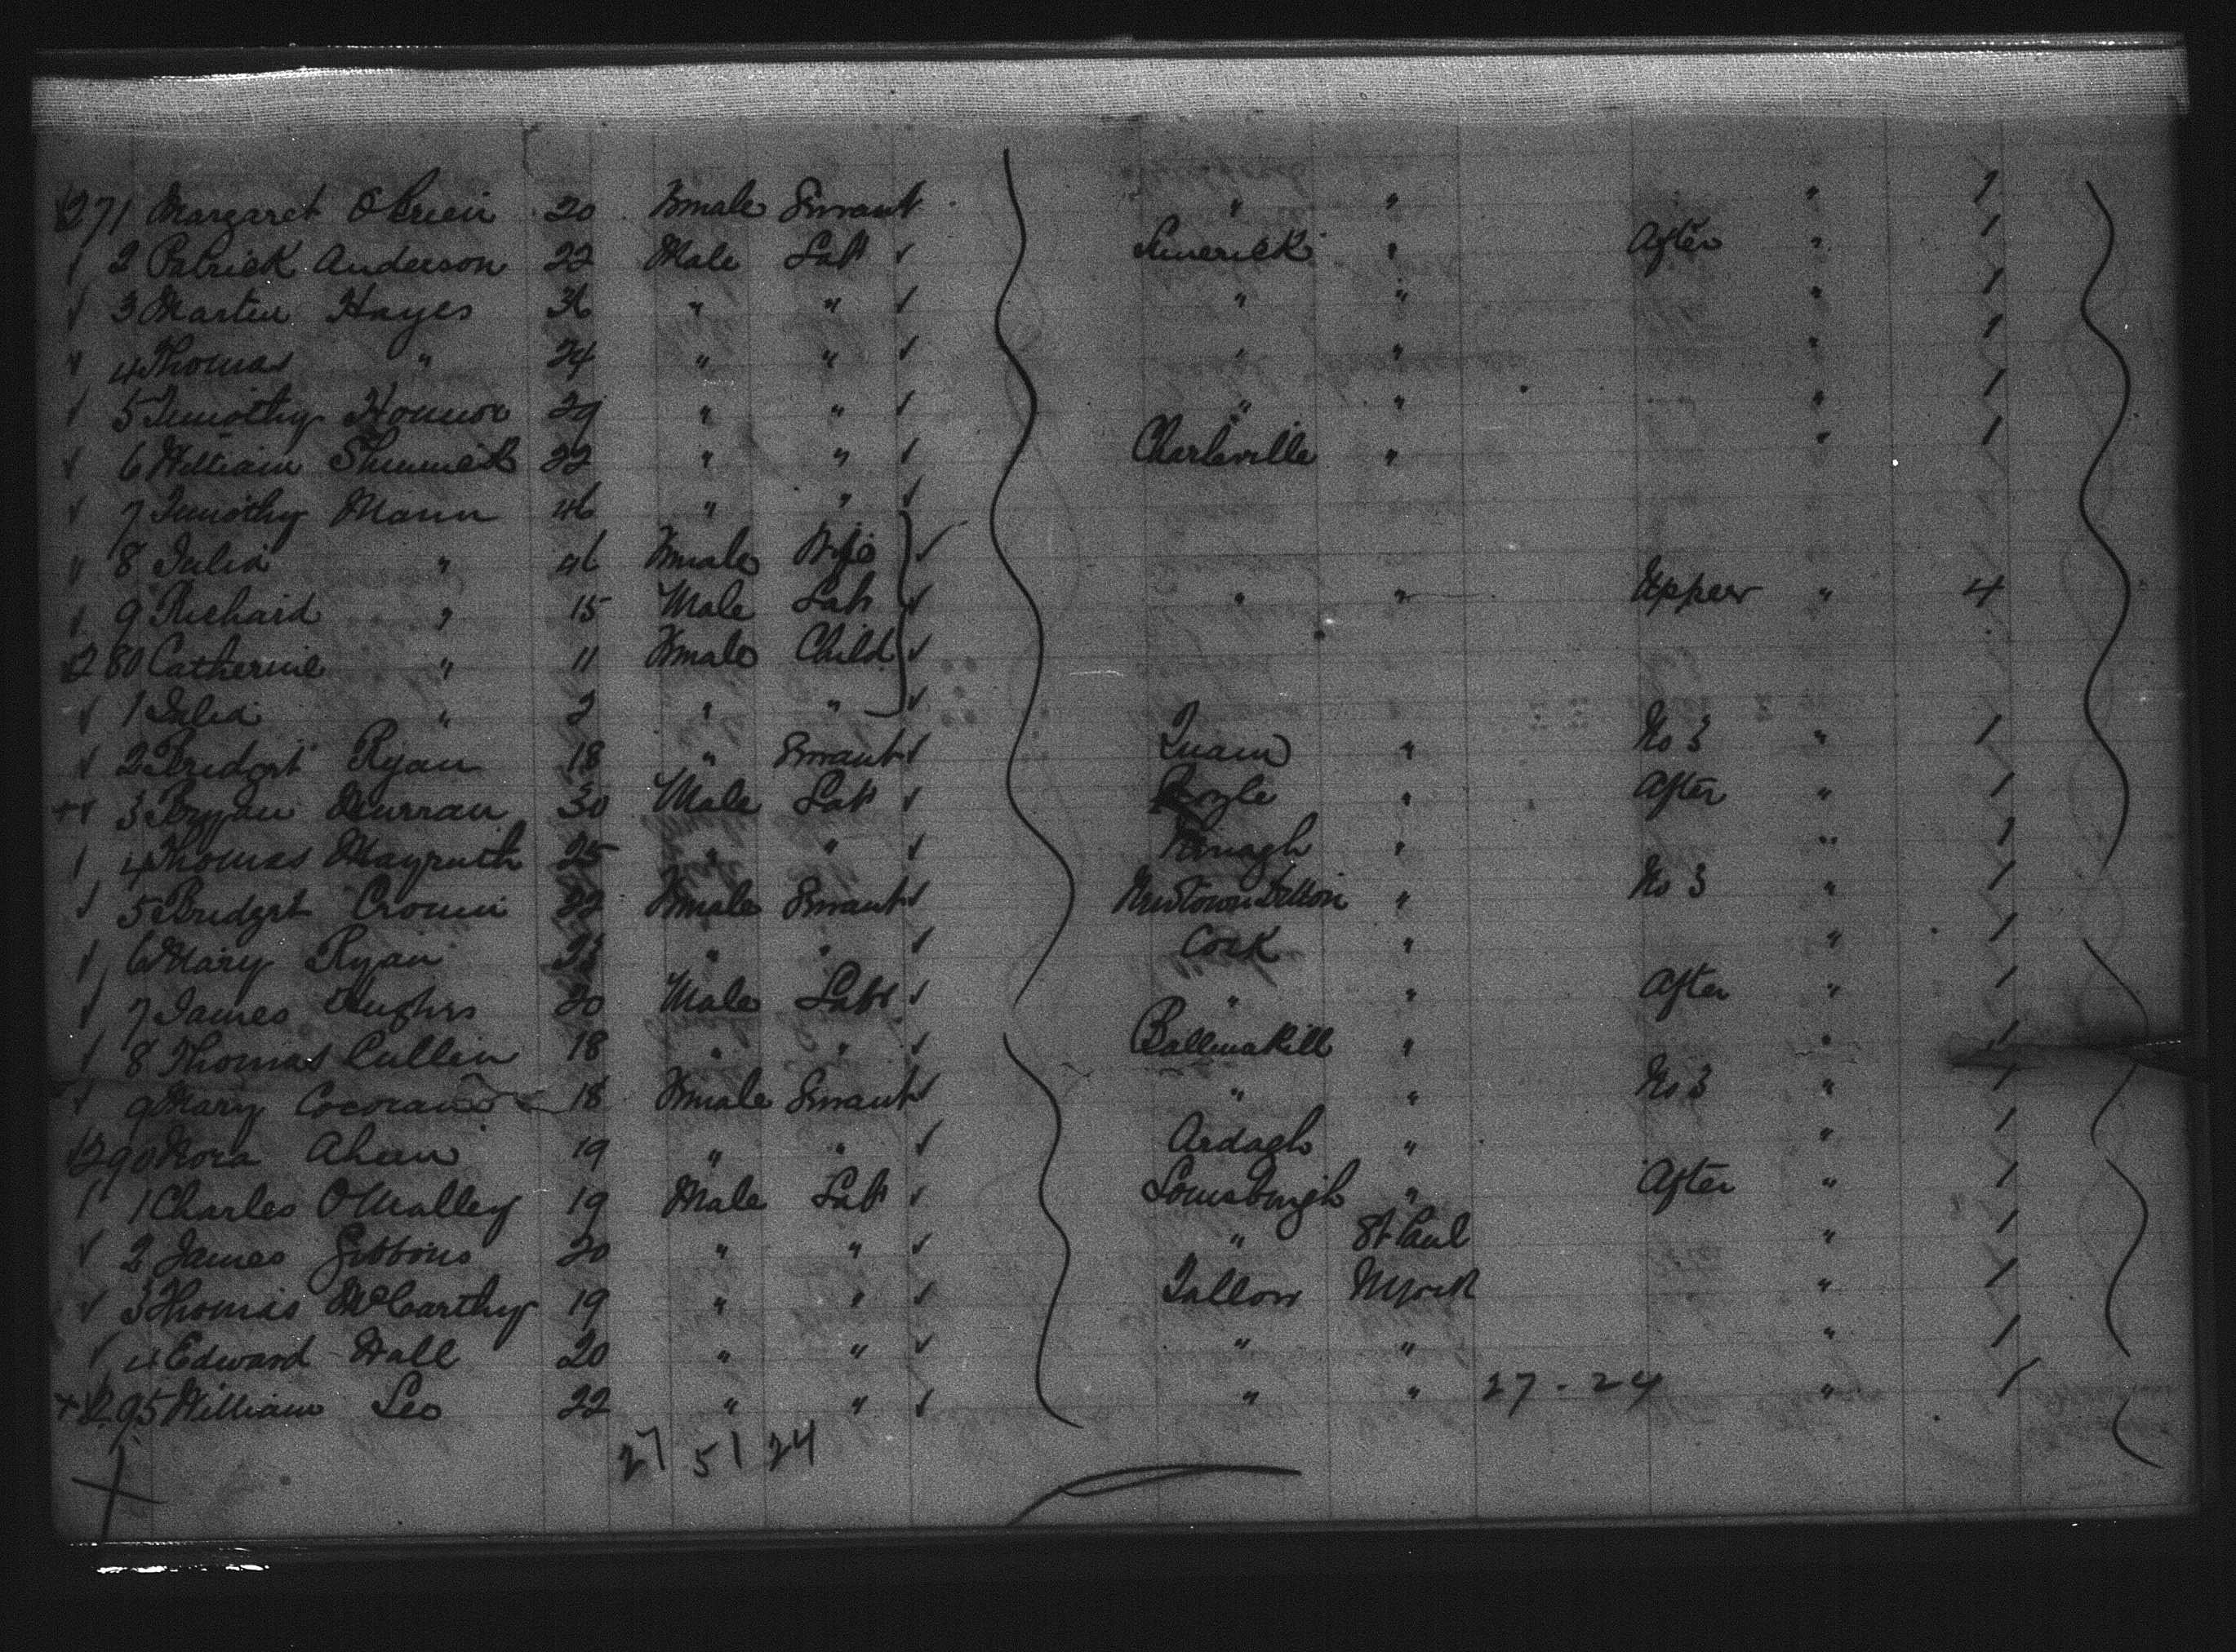 271 Margaret O'Brien 20 Female Servant " " " 1
2 Patrick Anderson 22 Male Lab Limerick " After " 1
3 Martin Hayes 36 " " " " " 1
4 Thomas " 24 " " " " " 1
5 Timothy Honnor 29 " " " " " 1
6 William 22 " " Charleville " " 1
7 Timothy Mann 46 " "
8 Julia " 46 Female Wife
9 Richard " 15 Male Lab " " Upper " 4
280 Catherine " 11 Female Child
1 Julia " 2 " "
2 Bridget Ryan 18 " Servant Tuam " No 3 " 1
3 Bryan 30 Male Lab Boyle " After " 1
4 Thomas 25 " " Nenagh " " 1
5 Bridget Cronin 22 Female Servant " No 3 " 1
6 Mary Ryan 23 " " Cork " " 1
7 James Hughes 20 Male Lab " " After " 1
8 Thomas Cullen 18 " " Ballinakill " " 1
9 Mary Cocoran 18 Female Servant " " No 3 " 1
290 Nora Ahern 19 " " Ardagh " " 1
1 Charles O'Malley 19 Male Lab Louisburgh " After " 1
2 James Gibbons 20 " " " St Paul " 1
3 Thomas McCarthy 19 " " Tallow NYork " 1
4 Edward Wall 20 " " " " " 1
295 William Leo 22 " " " " 27-24 " 1
27 51 24